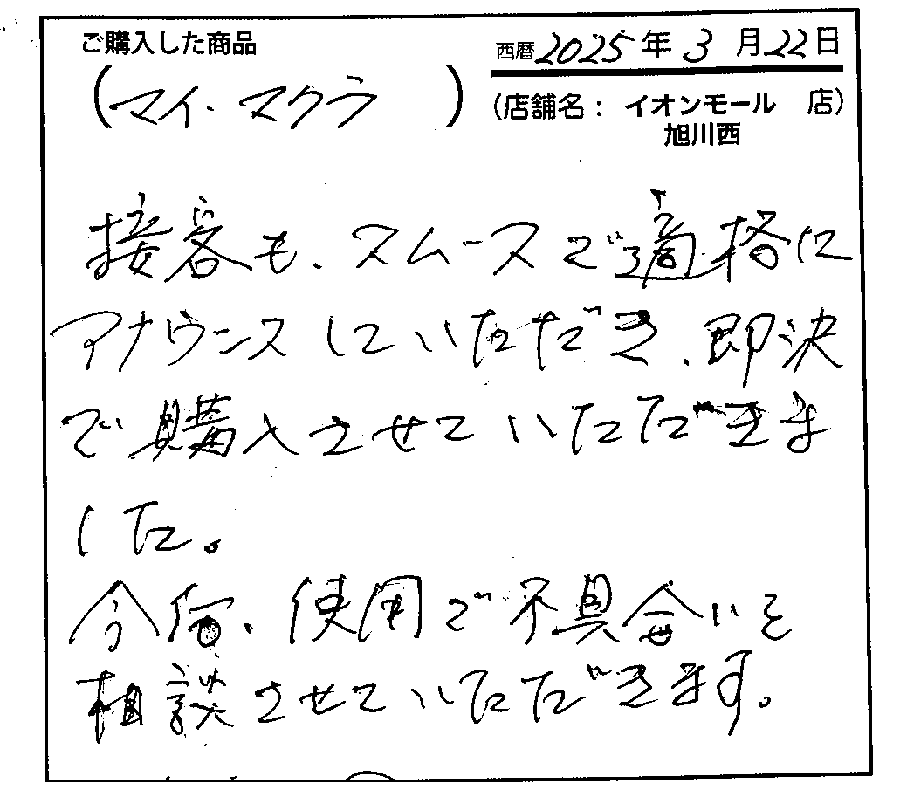 ご購入した商品
(マイ・マクラ)
西暦2025年3月22日
(店舗名： イオンモール 店)
旭川西
接客も、スムースで適格に
アナウンスしていただき、即決
で購入させていただきま
した。
今后、使用で不具合いを
相談させていただきます。